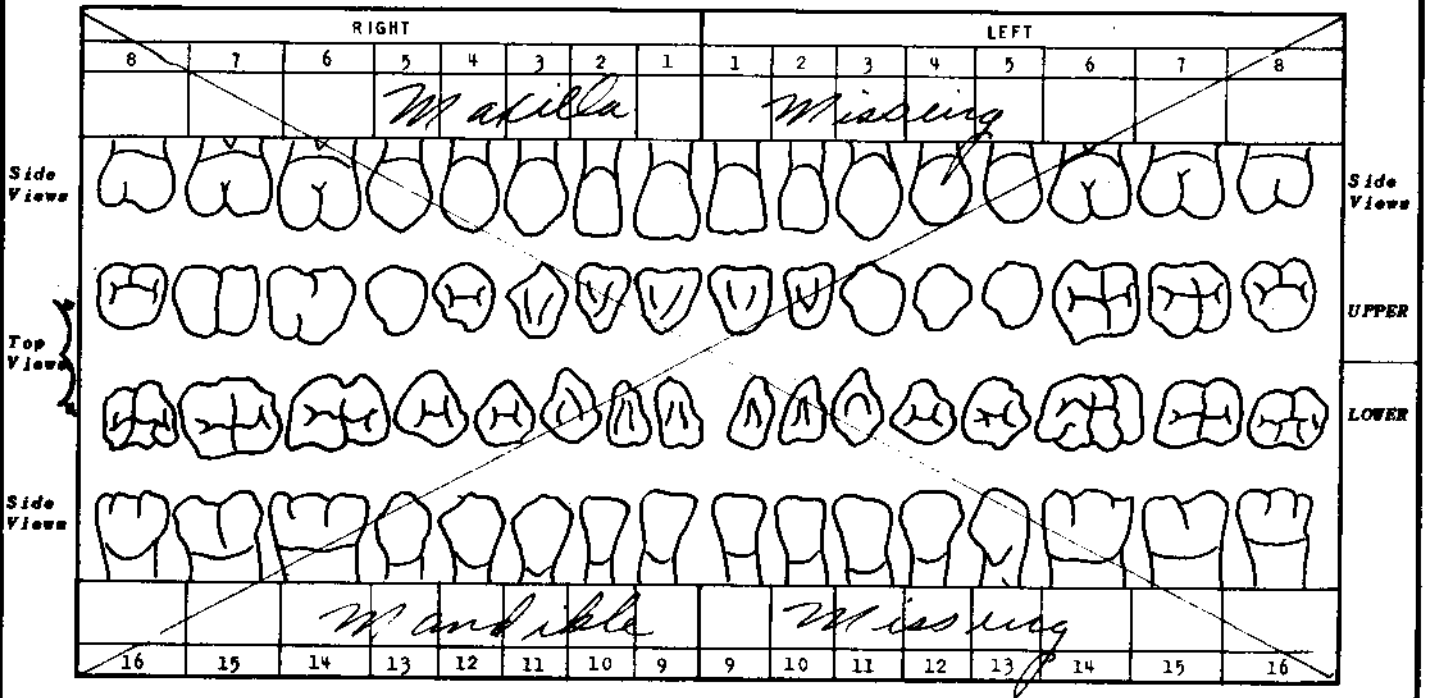 RIGHT LEFT
8 7 6 5 4 3 2 1 1 2 3 4 5 6 7 8
Maxilla Missing
Side Views
Side Views
UPPER
Top Views
LOWER
Side Views
Mandible Missing
16 15 14 13 12 11 10 9 9 10 11 12 13 14 15 16